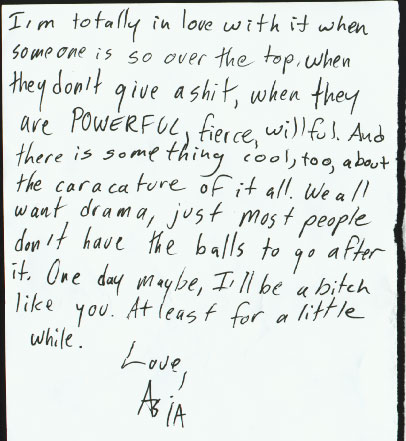 I'm totally in love with it when
someone is so over the top, when
they don't give a shit, when they
are POWERFUL, fierce, willful. And
there is something cool, too, about
the caracature of it all. We all
want drama, just most people
don't have the balls to go after
it. One day maybe, I'll be a bitch
like you. At least for a little
while.
Love,
ASIA